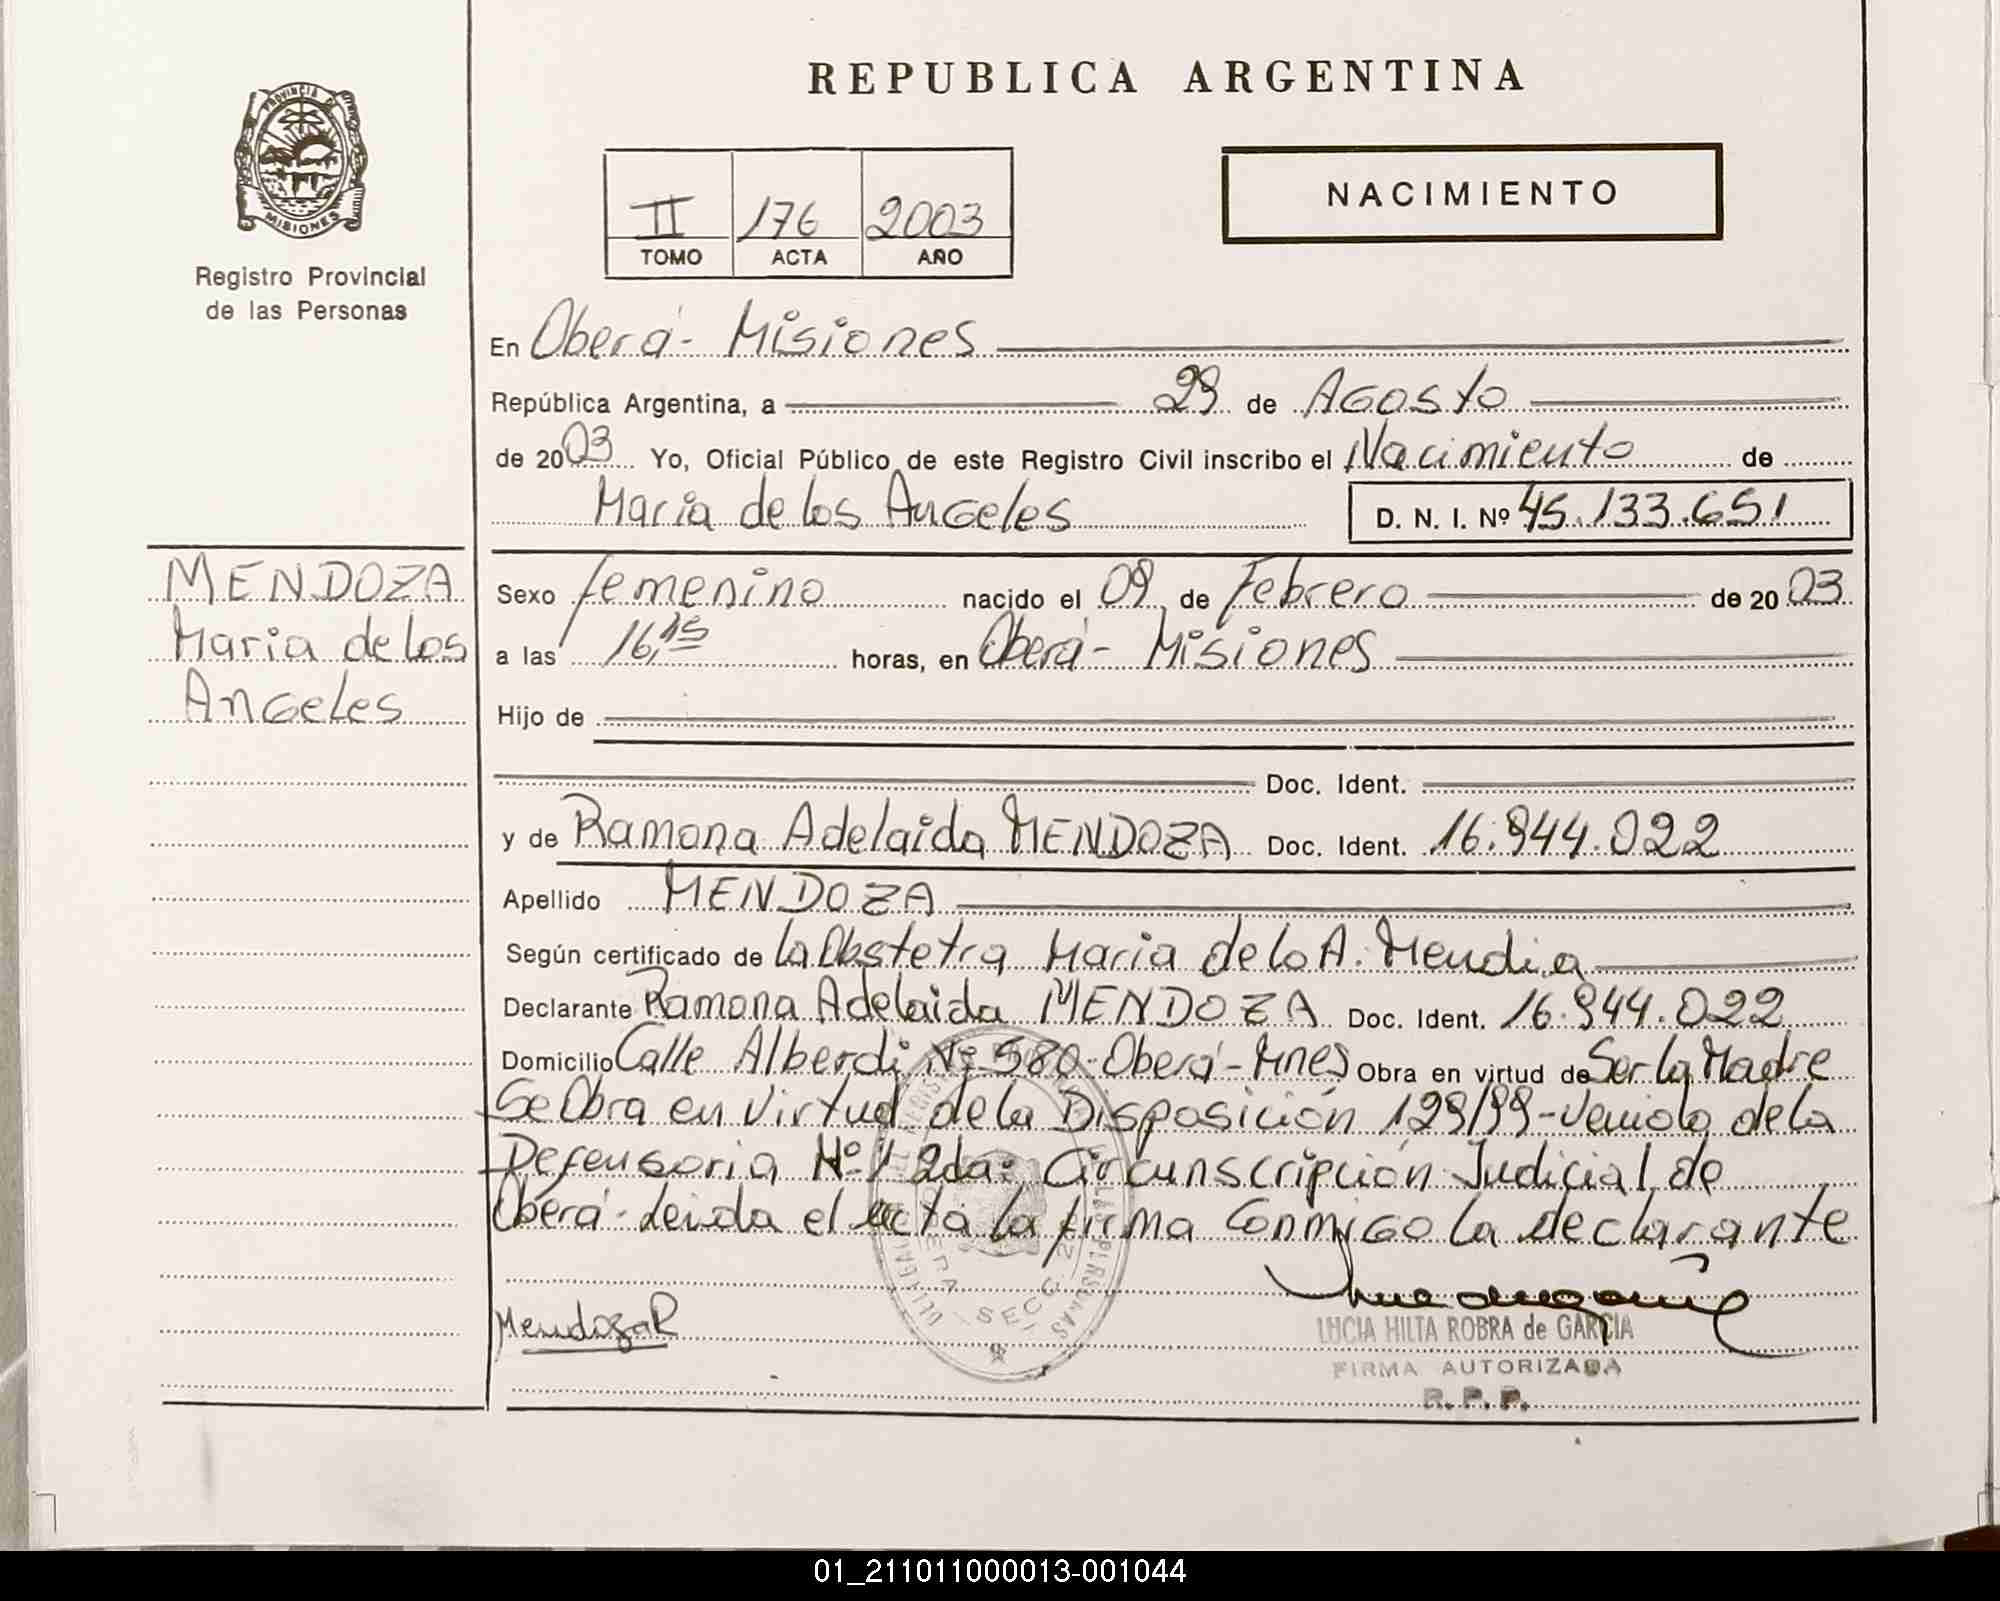 REPUBLICA ARGENTINA
PROVINCIA DE
MISIONES
Registro Provincial
de las Personas
II 176 2003
TOMO ACTA AÑO
NACIMIENTO
En Oberá - Misiones
República Argentina, a 29 de Agosto
de 2003 Yo, Oficial Público de este Registro Civil inscribo el Nacimiento de
Maria de los Angeles D. N. I. Nº 45.133.651
MENDOZA
Maria de los
Angeles
Sexo femenino nacido el 09 de Febrero de 2003
a las 16,15 horas, en Oberá - Misiones
Hijo de
Doc. Ident.
y de Ramona Adelaida MENDOZA Doc. Ident. 16.944.022
Apellido MENDOZA
Según certificado de la Obstetra Maria de lo A. Mendia
Declarante Ramona Adelaida MENDOZA Doc. Ident. 16.944.022
Domicilio Calle Alberdi Nº 580 - Oberá - Mnes Obra en virtud de Ser la Madre
Se Obra en virtud de la Disposición 129/99 - de la
Defensoria Nº 1 2da: Circunscripción Judicial de
Oberá - leida el acta la firma Conmigo la declarante
Mendoza R
LUCIA HILTA ROBRA de GARCIA
FIRMA AUTORIZADA
R. P. P.
01_211011000013-001044